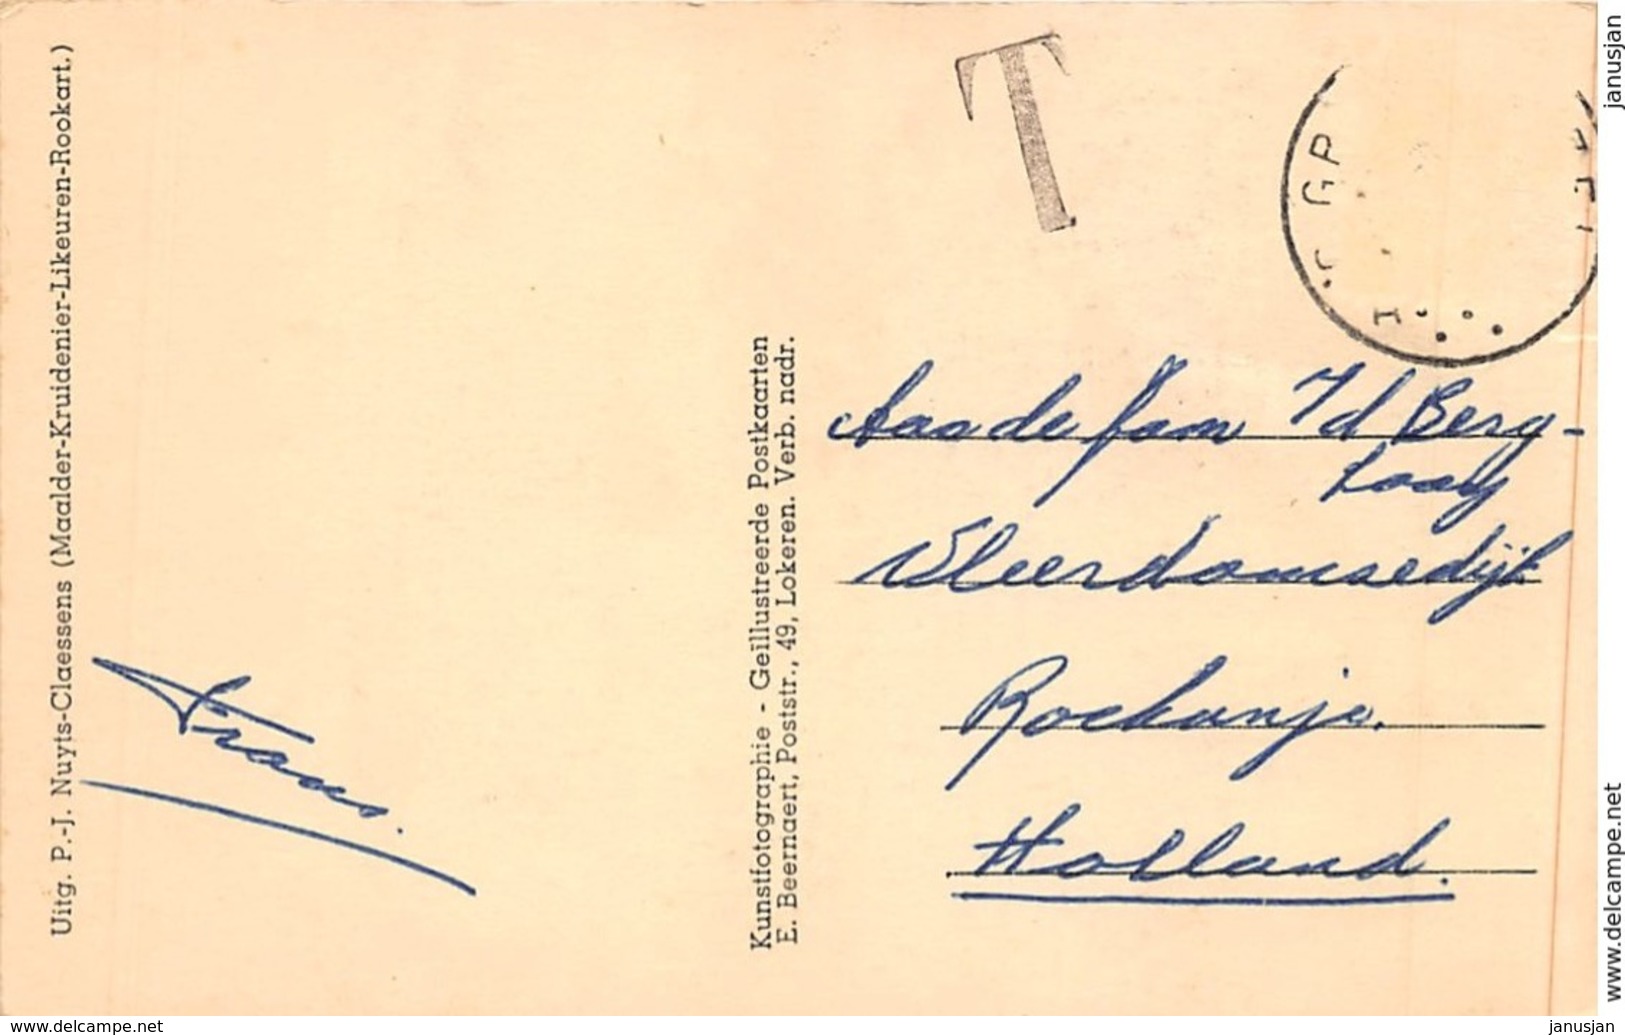 Uitg. P.-J. Nuyts-Claessens (Maalder-Kruidenier-Likeuren-Rookart.)
Frans.
Kunstfotographie - Geïllustreerde Postkaarten
E. Beernaert, Poststr., 49, Lokeren. Verb. nadr.
T
GP
I
Aan de fam v/d Berg-
Looy
Vleerdamsedijk
Rockanje.
Holland.
janusjan
www.delcampe.net
www.delcampe.net
janusjan